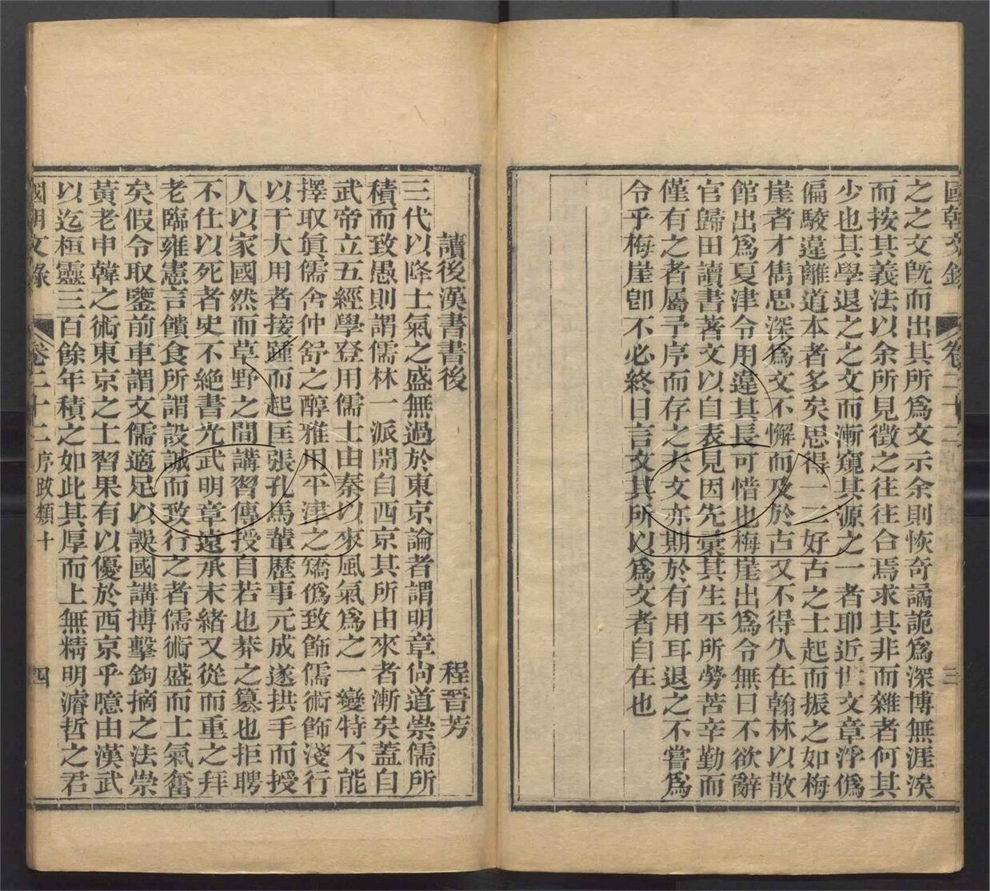 國朝文錄 卷二十二 三
之之文旣而出其所爲文示余則恢奇譎詭爲深博無涯涘
而按其義法以余所見徵之往往合焉求其非而雜者何其
少也其學退之之文而漸窺其源之一者耶近世文章浮僞
偏駮違離道本者多矣思得一二好古之士起而振之如梅
崖者才雋思深爲文不懈而及於古又不得久在翰林以散
館出爲夏津令用違其長可惜也梅崖出爲令無日不欲辭
官歸田讀書著文以自表見因先彙其生平所勞苦辛勤而
僅有之者屬予序而存之夫文亦期於有用耳退之不嘗爲
令乎梅崖卽不必終日言文其所以爲文者自在也
讀後漢書書後
程晉芳
三代以降士氣之盛無過於東京論者謂明章尙道崇儒所
積而致愚則謂儒林一派開自西京其所由來者漸矣蓋自
武帝立五經學登用儒士由泰以來風氣爲之一變特不能
擇取眞儒舍仲舒之醇雅用平津之矯僞致飾儒術飾淺行
以干大用者接踵而起匡張孔馬輩歷事元成遂拱手而授
人以家國然而草野之間講習傳授自若也莽之簒也拒聘
不仕以死者史不絕書光武明章遠承末緒又從而重之拜
老臨雍憲言饋食所謂設誠而致行之者儒術盛而士氣奮
矣假令取鑒前車謂文儒適足以誤國講搏擊鉤摘之法崇
黃老申韓之術東京之士習果有以優於西京乎噫由漢武
以迄桓靈三百餘年積之如此其厚而上無精明濬哲之君
國朝文錄 卷二十二 序跋類十 四